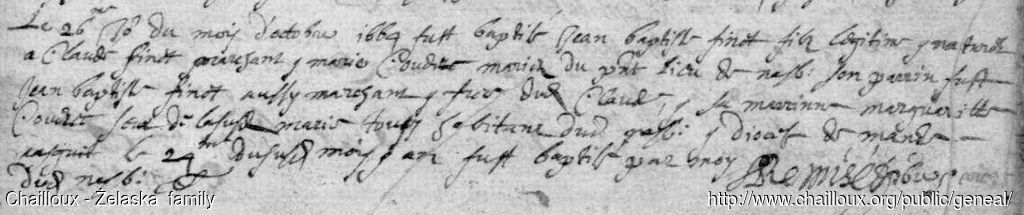 Le 26me Jo du mois d'octobre 1664 fust baptisé Jean baptiste finot filz legitime y naturelh
a Claude finot marchant y marie Coudert mariés du pnt lieu de nasbi. son parrin fust
Jean baptiste finot aussy marchant y frere dud Claude, y sa marrinne marguerille
Coudert seur de lasusd marie tous habitans dud nasbi y Diocese de mande
nasquit le 24me dususd mois y an fust baptisé par moy
dud nasbi
Chailloux - Żelaska family
http://www.chailloux.org/public/geneal/